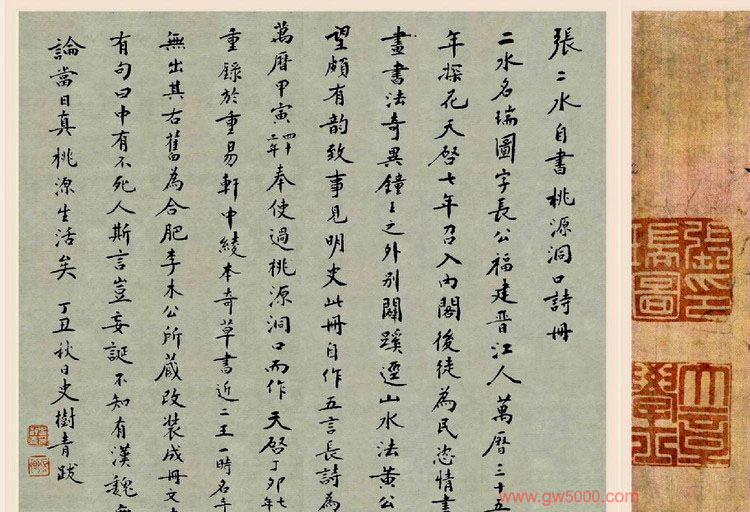 張二水自書桃源洞口詩冊
二水名瑞圖字長公福建晉江人萬曆三十五
年探花天啓七年召入內閣後徒為民恣情書
畫書法奇異鐘王之外别闢蹊逕山水法黃公
望頗有韵致事見明史此冊自作五言長詩為
萬曆甲寅四十二年奉使過桃源洞口而作天啓丁卯七年
重錄於重易軒中綾本奇草書近二王一時名手
無出其右舊為合肥李木公所蔵改裝成冊文
有句曰中有不死人斯言豈妄誕不知有漢魏無
論當日真桃源生活矣丁丑秋日史樹青跋
張瑞圖印
www.gw5000.com